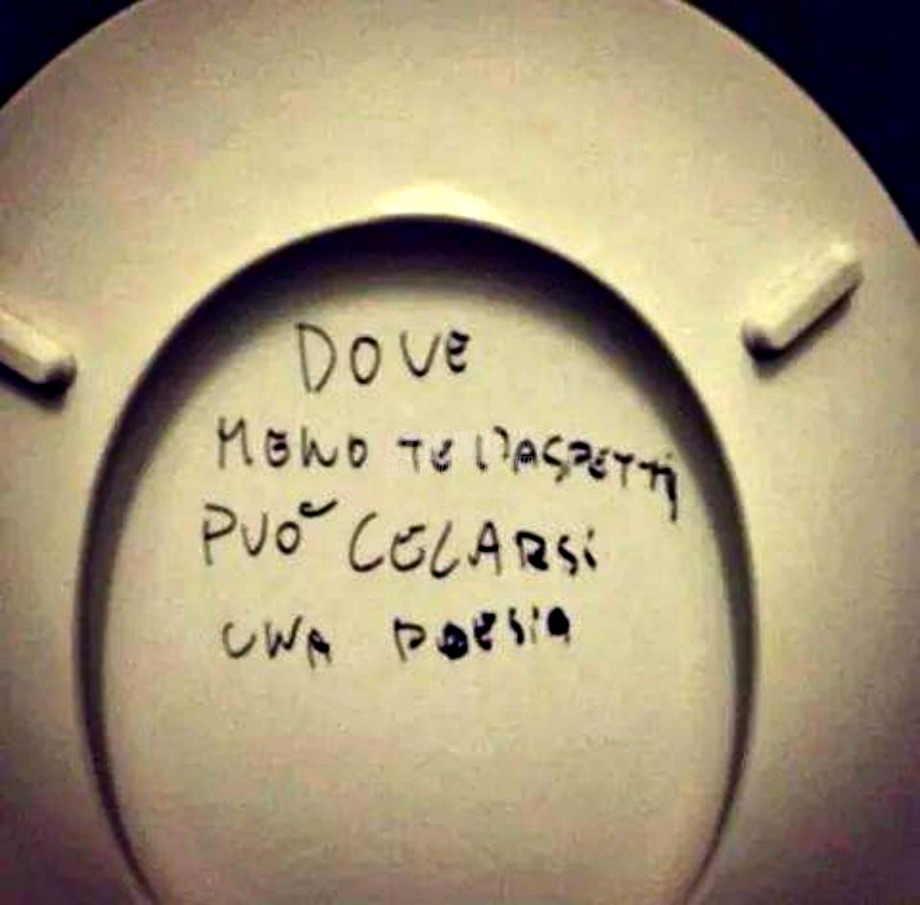 DOVE
MENO TE L'ASPETTI
PUÒ CELARSI
UNA POESIA